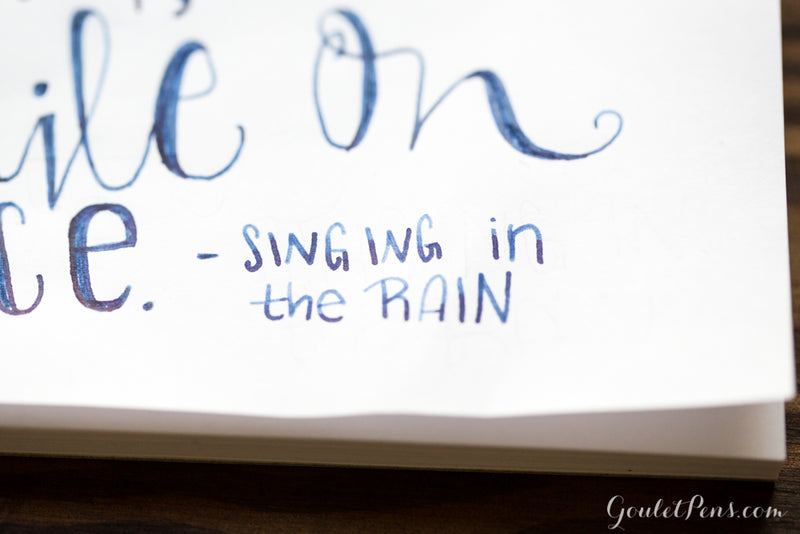 on
- SINGING in
the RAIN
GouletPens.com